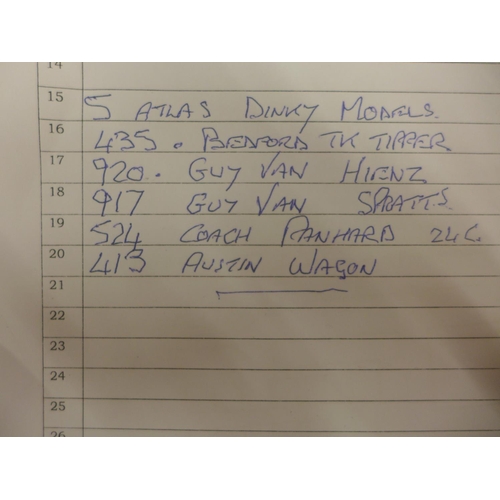 14
15 5 ATLAS DINKY MODELS.
16 435. BEDFORD TK TIPPER
17 920. GUY VAN HIENZ
18 917 GUY VAN SPRATTS.
19 524 COACH PANHARD 24C.
20 413 AUSTIN WAGON
21
22
23
24
25
26